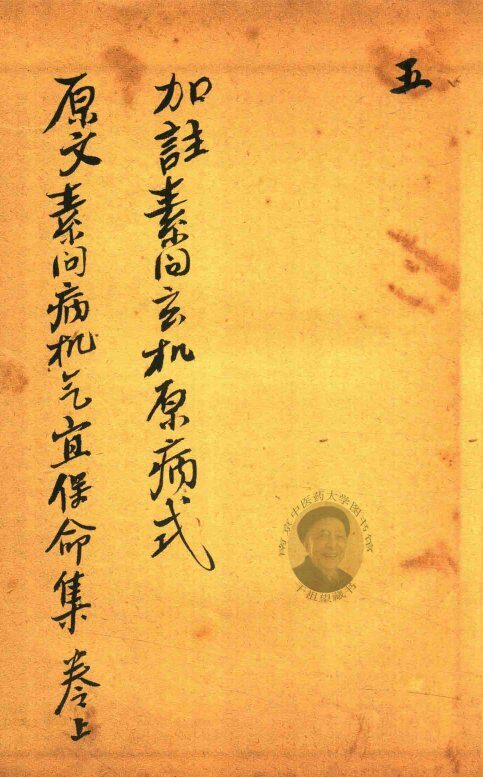 五
加註素问玄机原病式
原文素问病机气宜保命集 卷上
南京中医药大学图书馆
干祖望藏书